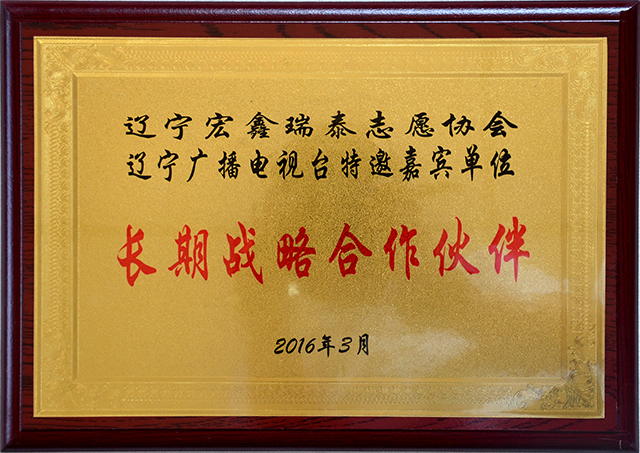 辽宁宏鑫瑞泰志愿协会
辽宁广播电视台特邀嘉宾单位
长期战略合作伙伴
2016年3月